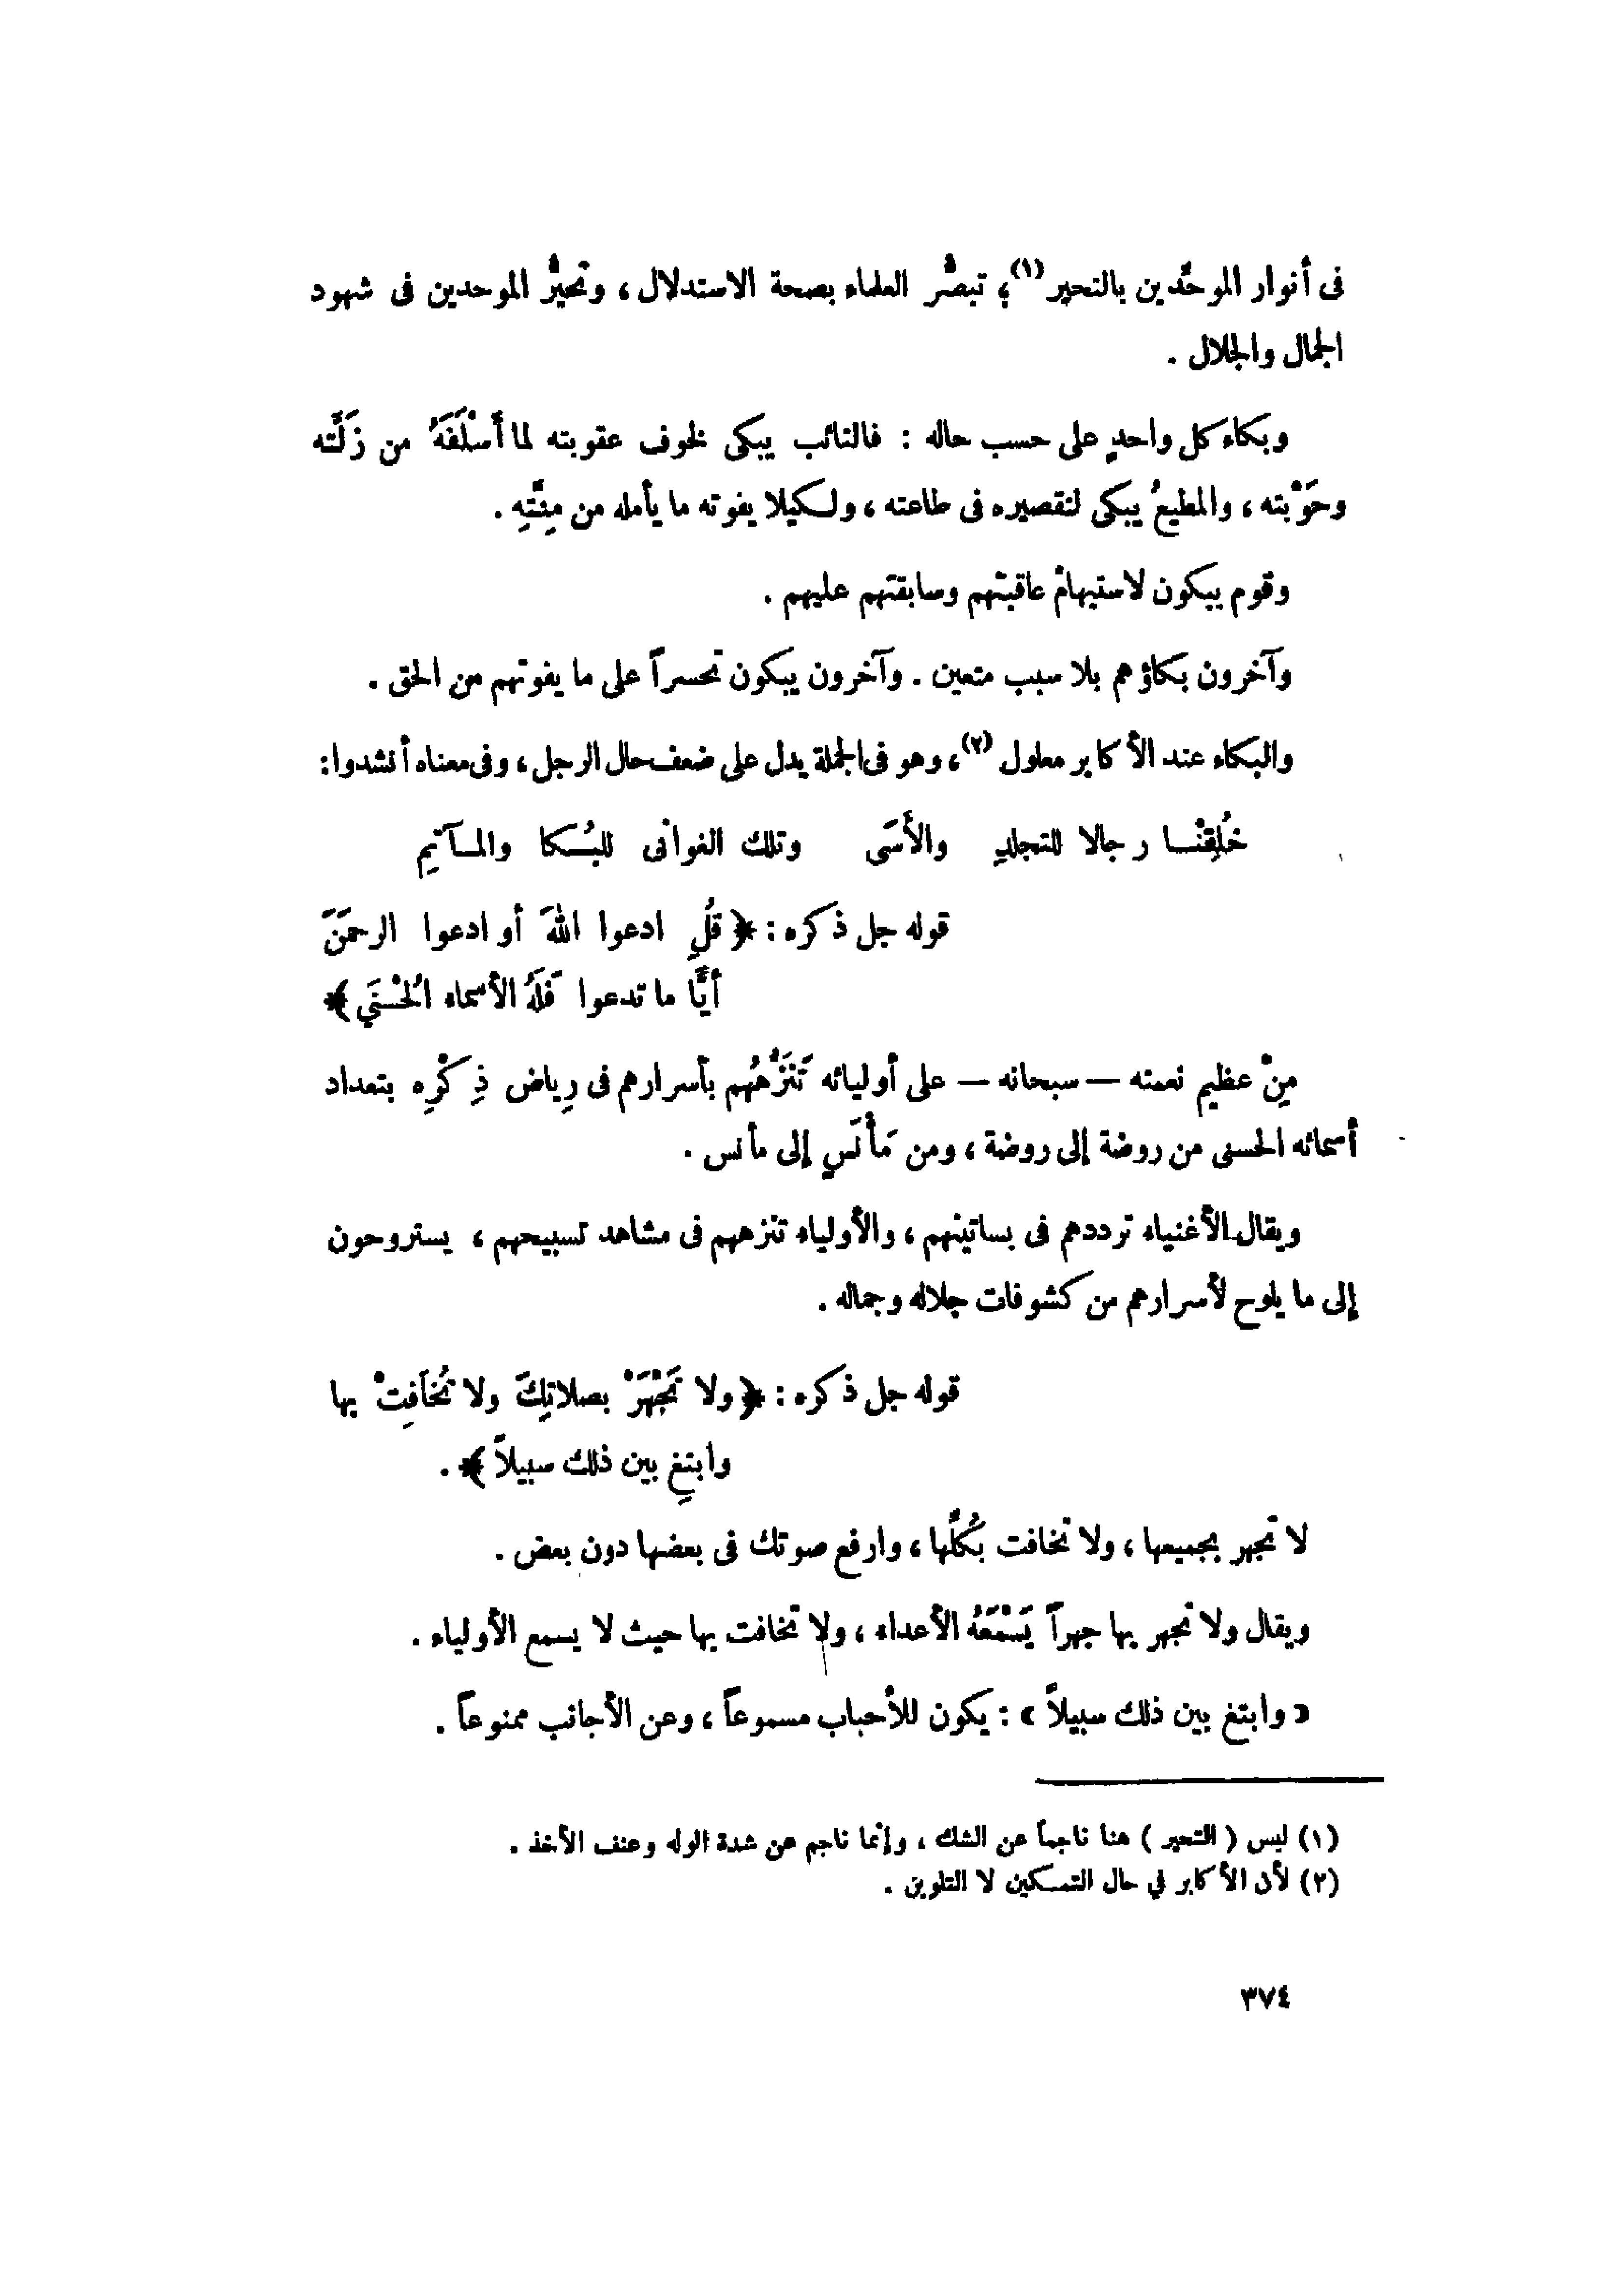 فى أنوار الموحِّدين بالتحير (١)؛ تبصُّر العلماء بصحة الاستدلال ، وتحيُّر الموحدين فى شهود
الجمال والجلال .
وبكاء كل واحدٍ على حسب حاله : فالتائب يبكى لخوف عقوبته لما أَسْلَفَهُ من زَلَّته
وحَوْبته ، والمطيعُ يبكى لتقصيره فى طاعته ، ولكيلا يفوته ما يأمله من مِنَّتِهِ .
وقوم يبكون لاستبهام عاقبتهم وسابقتهم عليهم .
وآخرون بكاؤهم بلا سبب متعين . وآخرون يبكون تحسراً على ما يفوتهم من الحق .
والبكاء عند الأكابر معلول (٢)، وهو فى الجملة يدل على ضعف حال الرجل ، وفى معناه أنشدوا :
خُلِقْنا رجالا للتجلدِ والأَسَى وتلك الغوانى للبُكا والمآتمِ
قوله جل ذكره : ﴿ قُلِ ادعوا اللهَ أو ادعوا الرحمَنَ
أيًّا ما تدعوا فَلَهُ الأسماء الُحْسْنَى ﴾
مِنْ عظيم نعمته — سبحانه — على أوليائه تَنَزُّهُهم بأسرارهم فى رِياض ذِكْرِه بتعداد
أسمائه الحسنى من روضة إلى روضة ، ومن مَأْنَسٍ إلى مأنس .
ويقال الأغنياء ترددهم فى بساتينهم ، والأولياء تنزههم فى مشاهد تسبيحهم ، يستروحون
إلى ما يلوح لأسرارهم من كشوفات جلاله وجماله .
قوله جل ذكره : ﴿ ولا تَجْهَرْ بصلاتِكَ ولا تُخاَفِتْ بها
وابتغِ بين ذلك سبيلاً ﴾ .
لا تجهر بجميعها ، ولا تخافت بكُلِّها ، وارفع صوتك فى بعضها دون بعض .
ويقال ولا تجهر بها جهراً يَسْمَعُهُ الأعداء ، ولا تخافت بها حيث لا يسمع الأولياء .
« وابتغ بين ذلك سبيلاً » : يكون للأحباب مسموعاً ، وعن الأجانب ممنوعاً .
(١) ليس ( التحير ) هنا ناجماً عن الشك ، وإنما ناجم عن شدة الوله وعنف الأخذ .
(٢) لأن الأكابر في حال التمكين لا التلوين .
٣٧٤